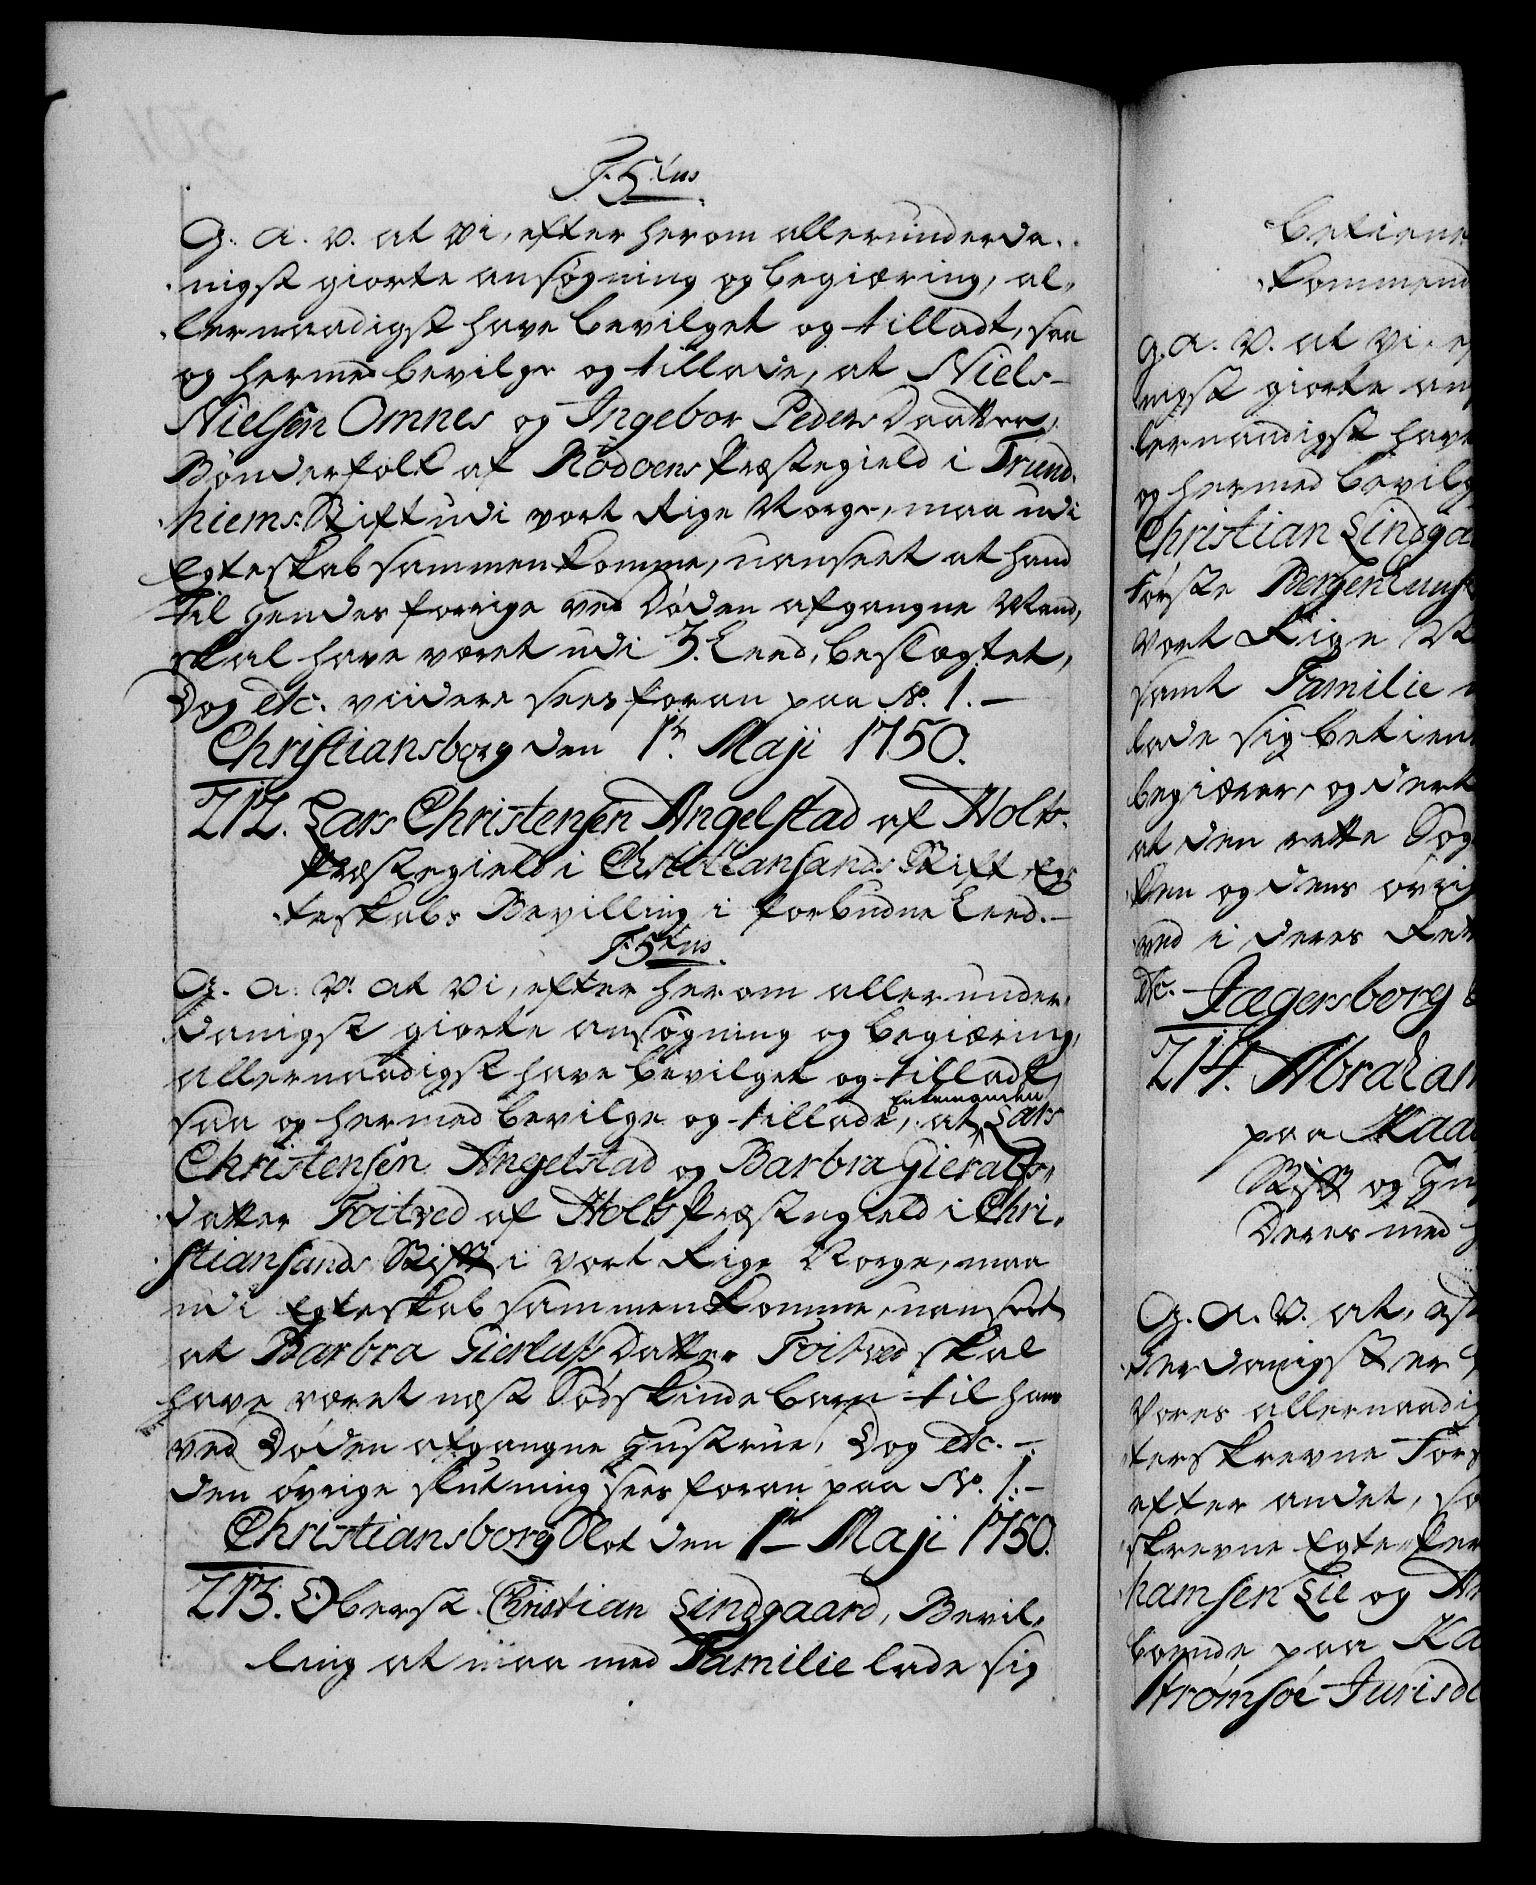 F. 5tus
G. A. V. at Vi, efter herom allerunderda-
nigst giorte ansøgning og begiæring, al-
lernaadigst have bevilget og tilladt, saa
og hermed bevilge og tillade, at Niels
Nielsen Omnes og Ingebor Peders Daatter,
Bønderfolk af Rødoens Præstegield i Trund-
hiems Stift udi vort Rige Norge, maa udi
Egteskab sammenkomme, uanseet at hand
til Hendes forrige ved Døden afgangne Mand,
skal have været udi 3. Leed, beslægtet,
Dog etc. viidere sees foran paa No. 1.
Christiansborg den 1te Maji 1750.
212. Lars Christensen Angelstad af Holts
Præstegield i Christiansands Stift, Eg-
teskabs Bevilling i forbudne Leed.
F. 5tus
G. A. V. at Vi, efter herom allerunder-
danigst giorte ansøgning og begiæring,
allernaadigst have bevilget og tilladt,
saa og hermed bevilge og tillade, at Enkemanden Lars
Christensen Angelstad og Barbra Gieralfs-
datter Foitved af Holts Præstegield i Chri-
stiansands Stift i vort Rige Norge, maa
udi Egteskab sammenkomme, uanseet
at Barbra Gierlufs Datter Foitved skal
have været næst Sødskindebarn til hans
ved Døden afgangne Hustrue, Dog etc.
den øvrige slutning sees foran paa No. 1.
Christiansborg Slot den 1te Maji 1750.
213. Oberst Christian Lindgaard, Bevil-
ling at maa med Familie lade sig
betiene
Kommend
G. A. V. at Vi, ef
nigst giorte an
lernaadigst have
og hermed bevilg
Christian Lindga
Første Bergenhuus
vort Rige N
samt Familie
lade sig betien
begiærer, og dert
at den rette Sog
ken og dens øvrig
ved i deres Ret
etc. Jægersborg
214. Abraham
paa Kaa
Stift og
Deres med
G. A. V. at, eft
derdanigst er
Vores allernaadig
terskrevne For
efter andet, so
skrevne Egtefer
hamsen Lie og An
boende paa Ka
Strømsøe Jurisdi